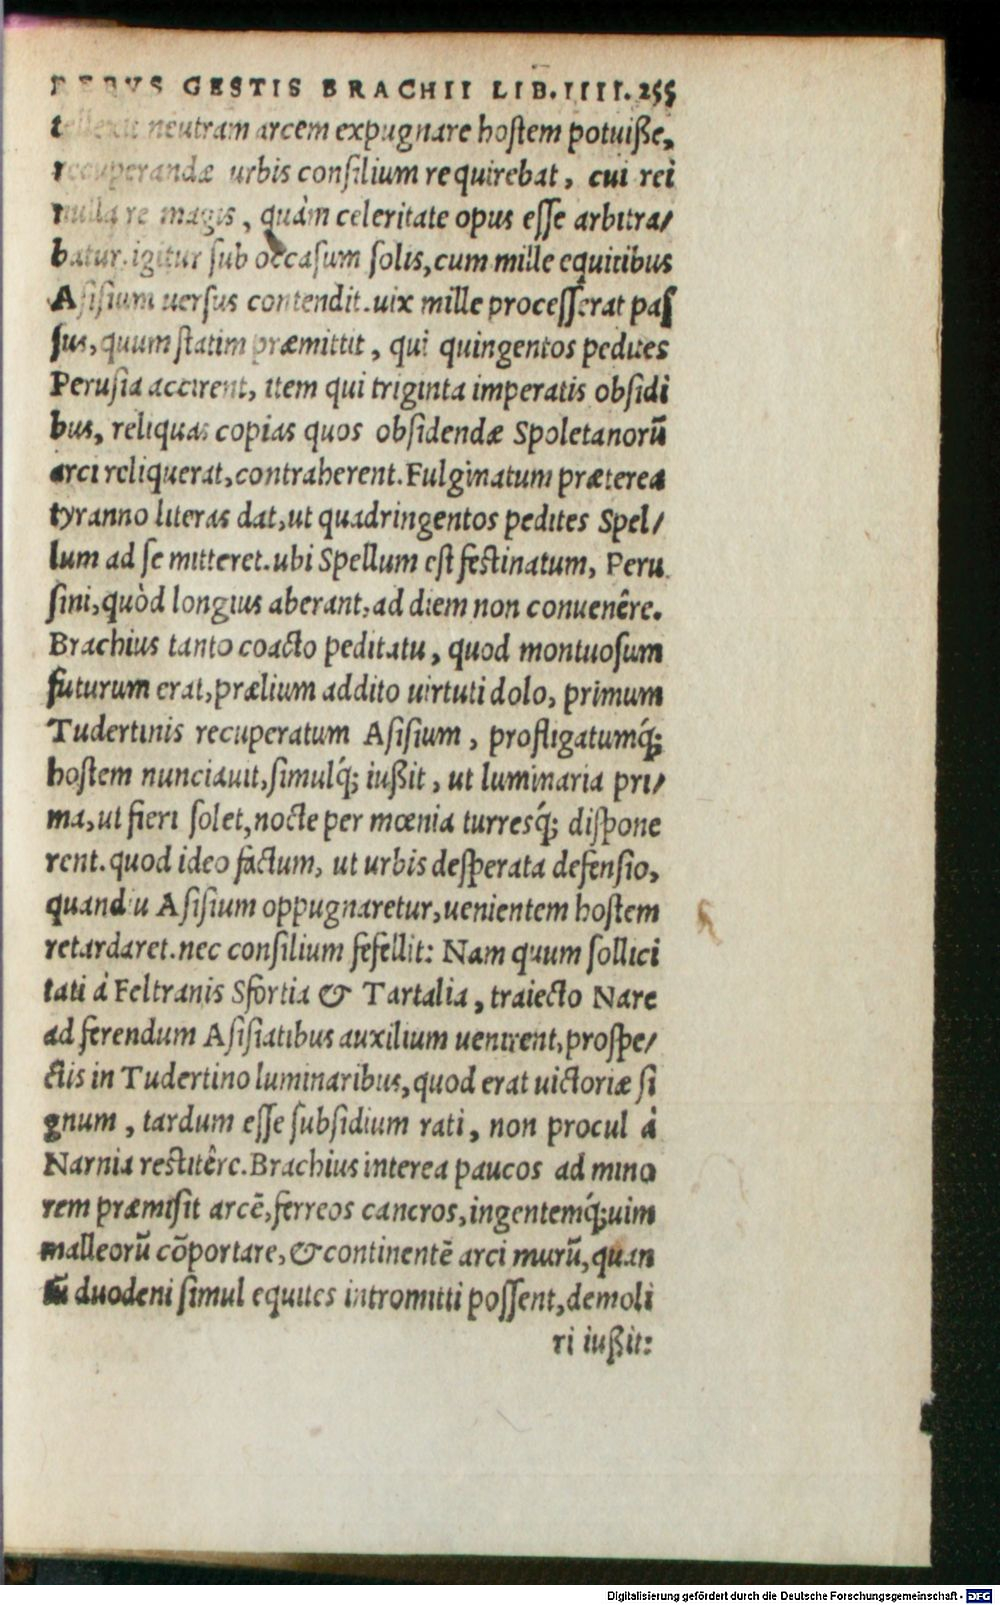 REBVS GESTIS BRACHII LIB. IIII. 255
tellexit neutram arcem expugnare hostem potuiße,
recuperandæ urbis consilium requirebat, cui rei
nulla re magis, quàm celeritate opus esse arbitra/
batur. igitur sub occasum solis, cum mille equitibus
Asisium uersus contendit. uix mille processerat pas
sus, quum statim præmittit, qui quingentos pedites
Perusia accirent, item qui triginta imperatis obsidi
bus, reliquas copias quos obsidendæ Spoletanorũ
arci reliquerat, contraherent. Fulginatum præterea
tyranno literas dat, ut quadringentos pedites Spel/
lum ad se mitteret. ubi Spellum est festinatum, Peru
sini, quòd longius aberant, ad diem non conuenêre.
Brachius tanto coacto peditatu, quod montuosum
futurum erat, prælium addito uirtuti dolo, primum
Tudertinis recuperatum Asisium, profligatumq́;
hostem nunciauit, simulq́; iußit, ut luminaria pri/
ma, ut fieri solet, nocte per mœnia turresq́; dispone
rent. quod ideo factum, ut urbis desperata defensio,
quandiu Asisium oppugnaretur, uenientem hostem
retardaret. nec consilium fefellit: Nam quum sollici
tati à Feltranis Sfortia & Tartalia, traiecto Nare
ad ferendum Asisiatibus auxilium uenirent, prospe/
ctis in Tudertino luminaribus, quod erat uictoriæ si
gnum, tardum esse subsidium rati, non procul à
Narnia restitêre. Brachius interea paucos ad mino
rem præmisit arcẽ, ferreos cancros, ingentemq́; uim
malleorũ cõportare, & continentẽ arci murũ, quan
tũ duodeni simul equites intromitti possent, demoli
ri iußit:
Digitalisierung gefördert durch die Deutsche Forschungsgemeinschaft - DFG